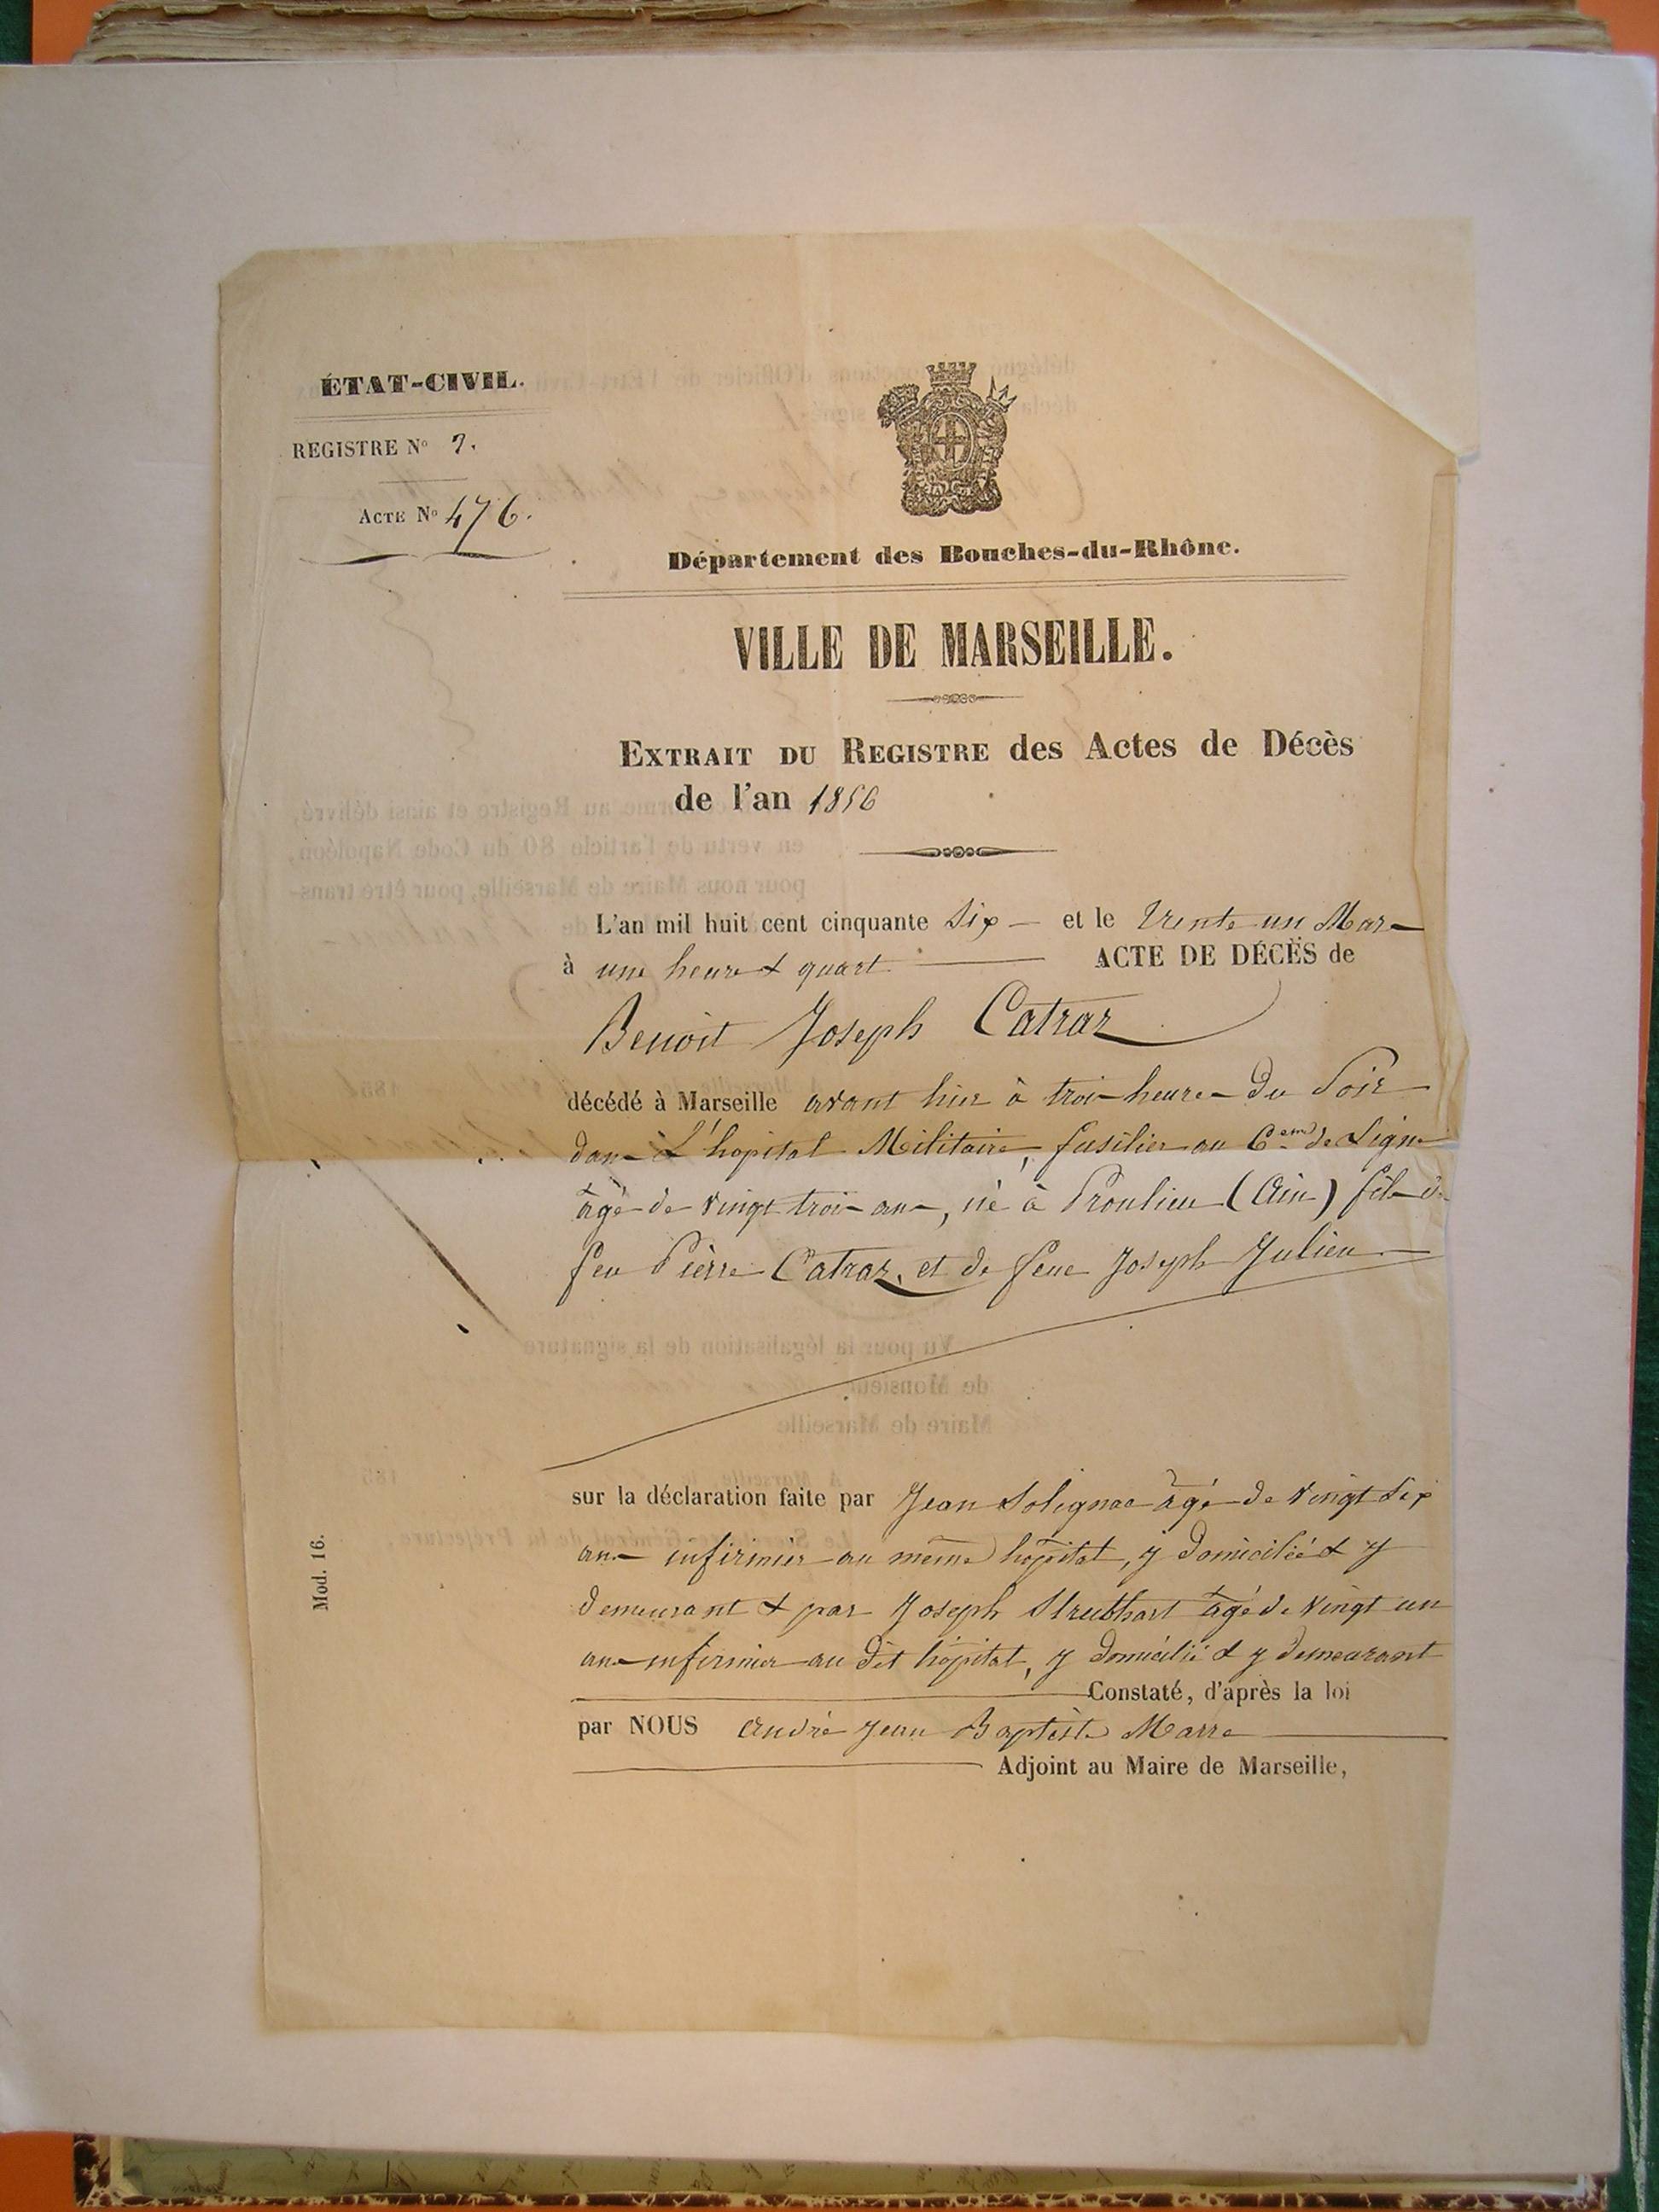 ÉTAT-CIVIL.
REGISTRE N° 7.
ACTE N° 476.
Département des Bouches-du-Rhône.
VILLE DE MARSEILLE.
EXTRAIT DU REGISTRE des Actes de Décès
de l'an 1856
L'an mil huit cent cinquante Six et le Trente un Mars
à une heure & quart ACTE DE DÉCÈS de
Benoit Joseph Catraz
décédé à Marseille avant hier à trois heures du Soir
dans L'hopital Militaire, fusilier au 6eme de Ligne
âgé de vingt trois ans, né à Proulieu (Ain) fils de
feu Pièrre Catraz, et de feue Joseph Julien
sur la déclaration faite par Jean Solignac âgé de vingt Six
ans infirmier au même hôpital, y domicilié & y
demeurant & par Joseph âgé de vingt un
ans infirmier au dit hôpital, y domicilié & y demeurant
Constaté, d'après la loi
par NOUS André Jean Baptiste Marre
Adjoint au Maire de Marseille,
Mod. 16.